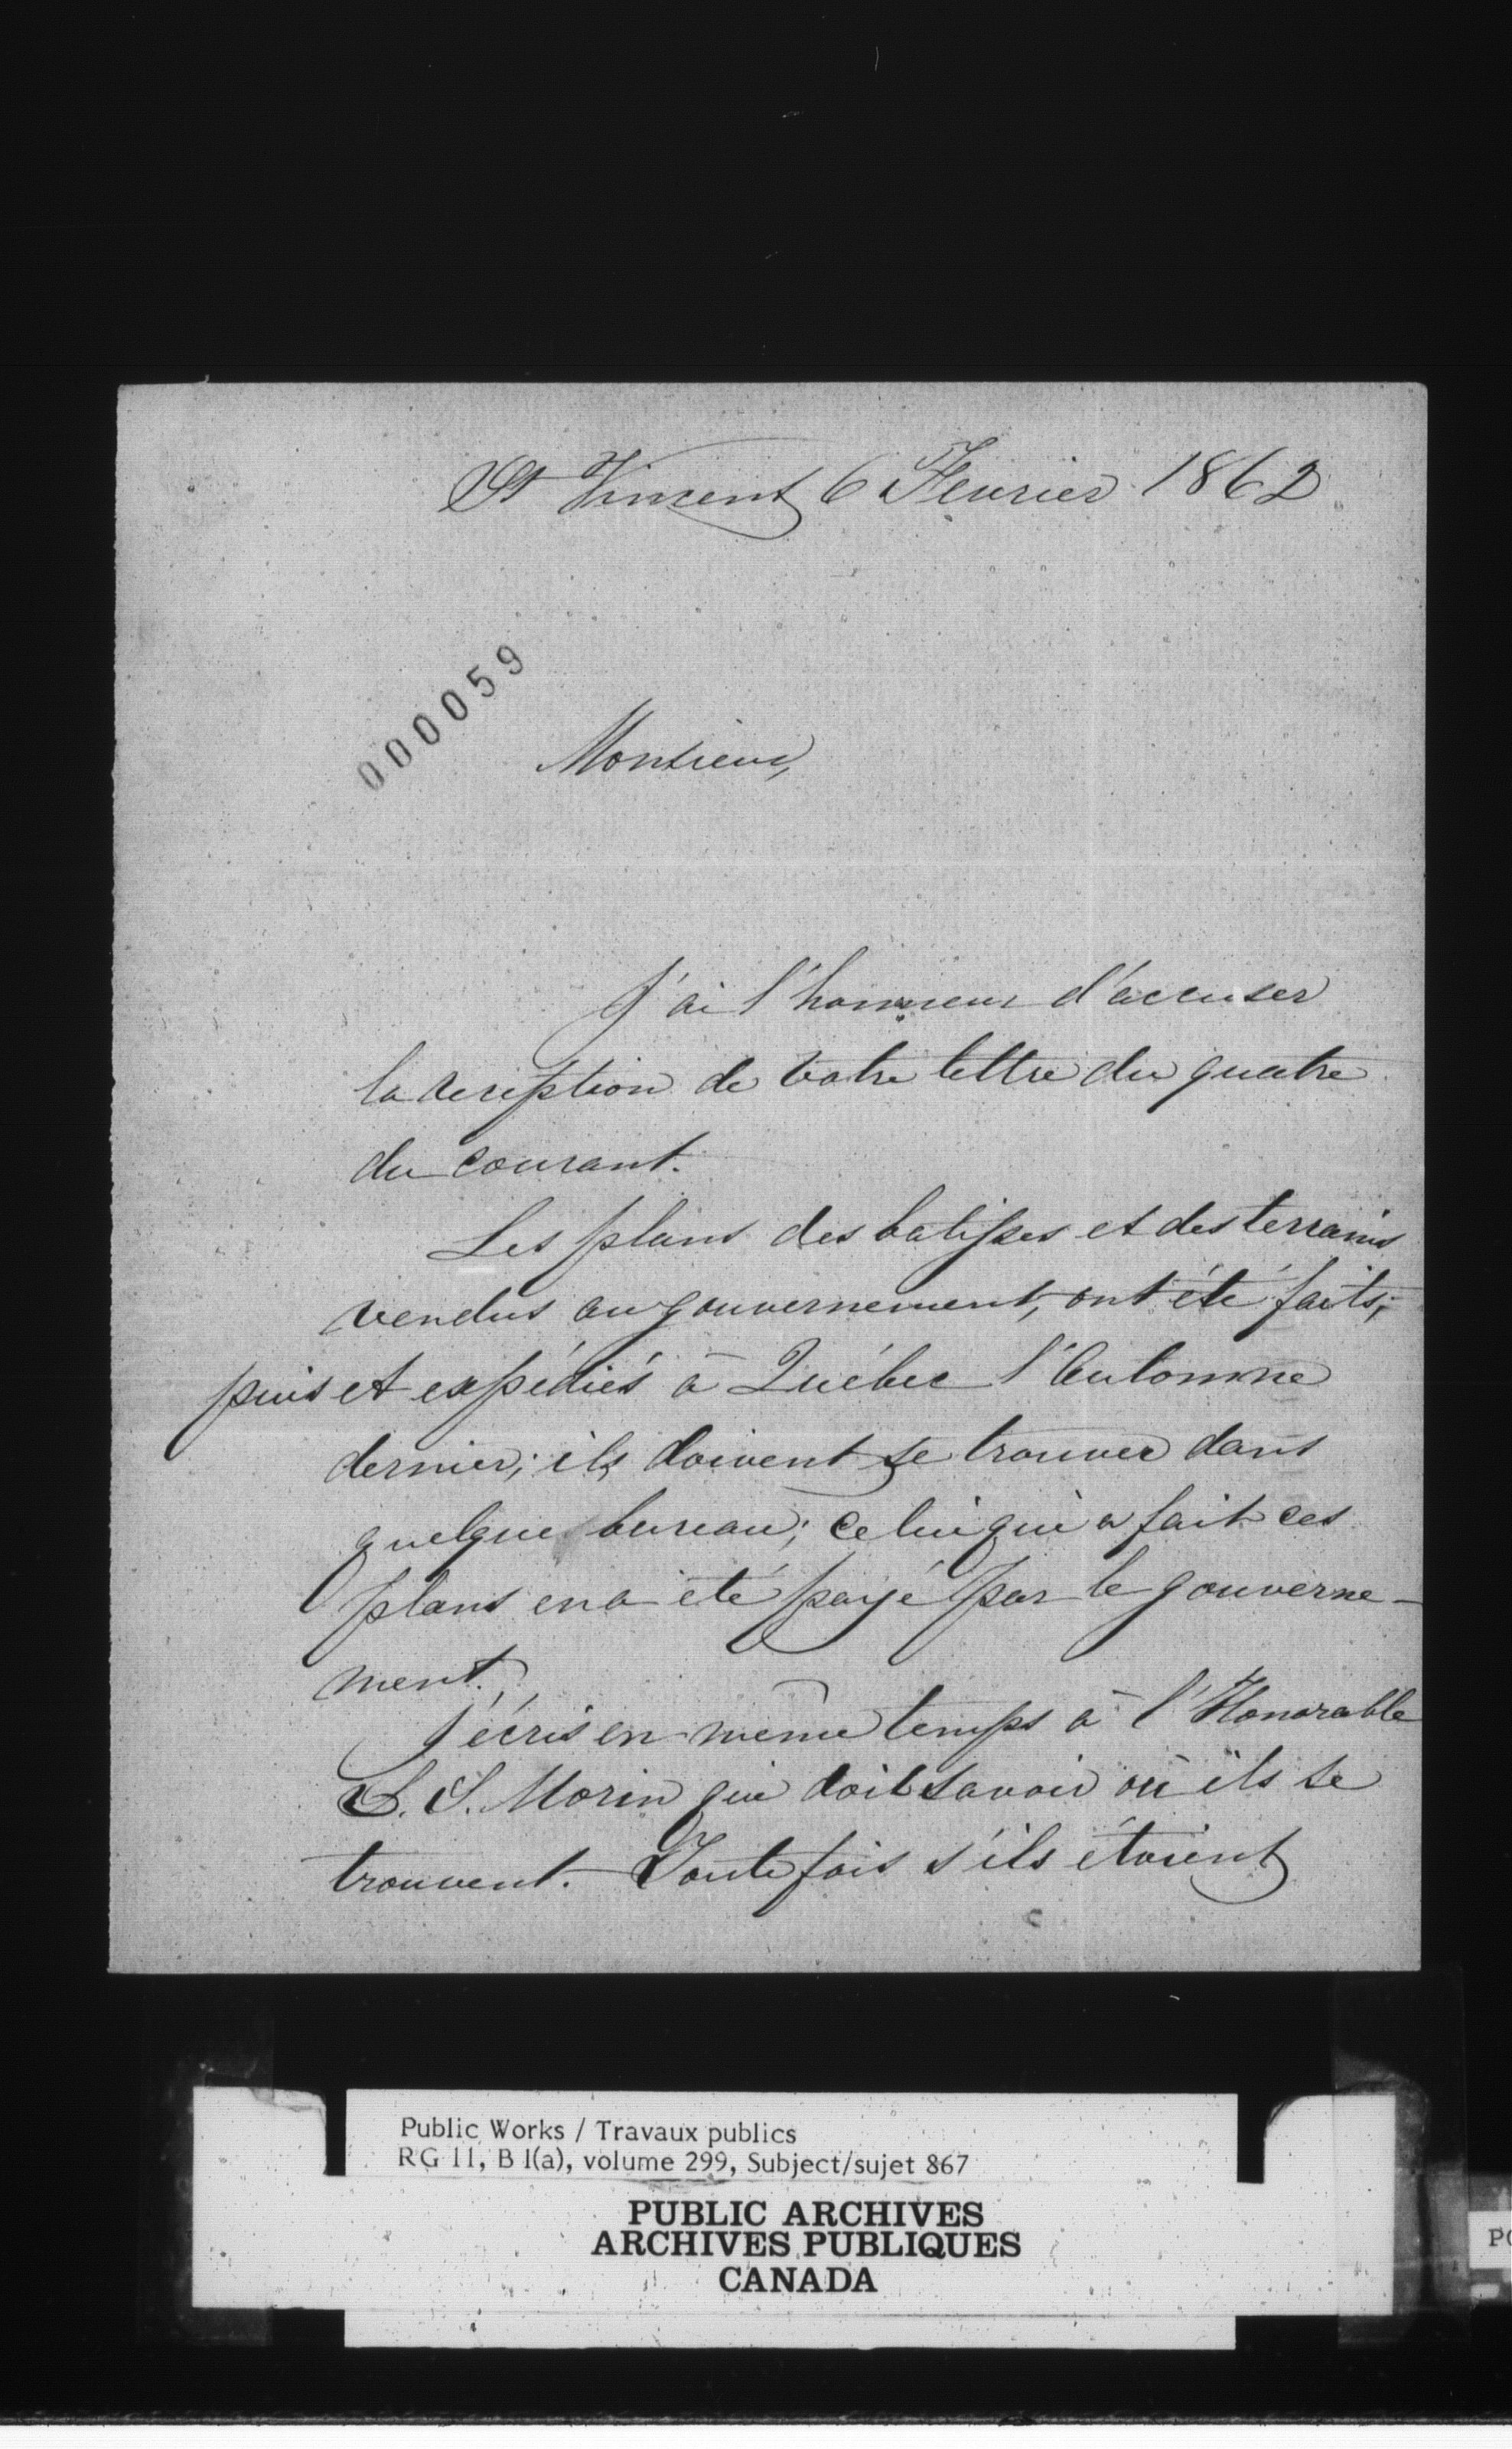 St Vincent 6 Fevrier 1862
000059
Monsieur,
J'ai l'honneur d'accuser
la reception de votre lettre du quatre
du courant.
Les plans des batisses et des terrains
vendus au gouvernement, ont été faits,
puis et expédiés à Québec l'Automne
dernier; ils doivent se trouver dans
quelque bureau; celui qui a fait ces
plans en a été payé par le gouverne-
ment.
J'écris en même temps à l'Honorable
L. S. Morin qui doit savoir où ils se
trouvent. Toutefois s'ils étaient
Public Works / Travaux publics
RG 11, B 1(a), volume 299, Subject/sujet 867
PUBLIC ARCHIVES
ARCHIVES PUBLIQUES
CANADA